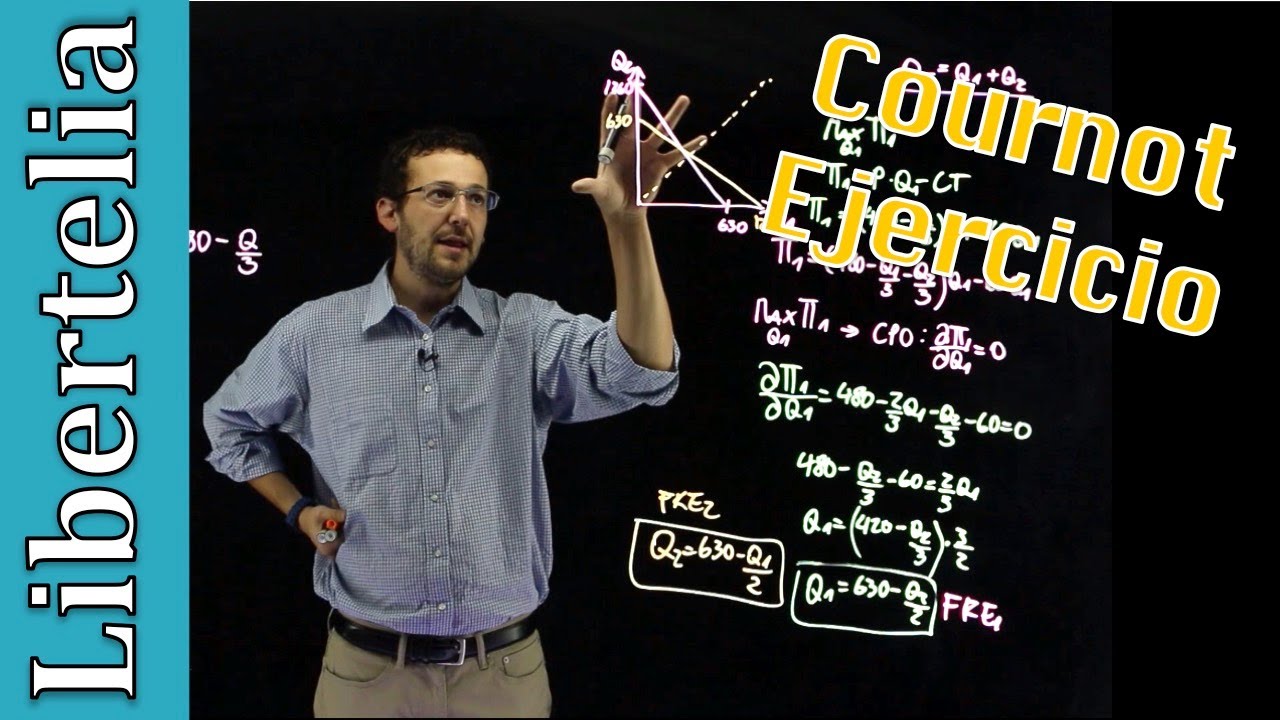 Libertelia
Cournot
Ejercicio
80 - Q/3
Q₂
1260
630
630
= Q₁ + Q₂
Max Π₁
Q₁
P·Q₁ - CT
Max Π₁ → CPO: ∂Π₁/∂Q₁ = 0
Q₁
∂Π₁/∂Q₁ = 480 - 2/3 Q₁ - Q₂/3 - 60 = 0
480 - Q₂/3 - 60 = 2/3 Q₁
Q₁ = (420 - Q₂/3) · 3/2
FRE₂
Q₂ = 630 - Q₁/2
Q₁ = 630 - Q₂/2 FRE₁